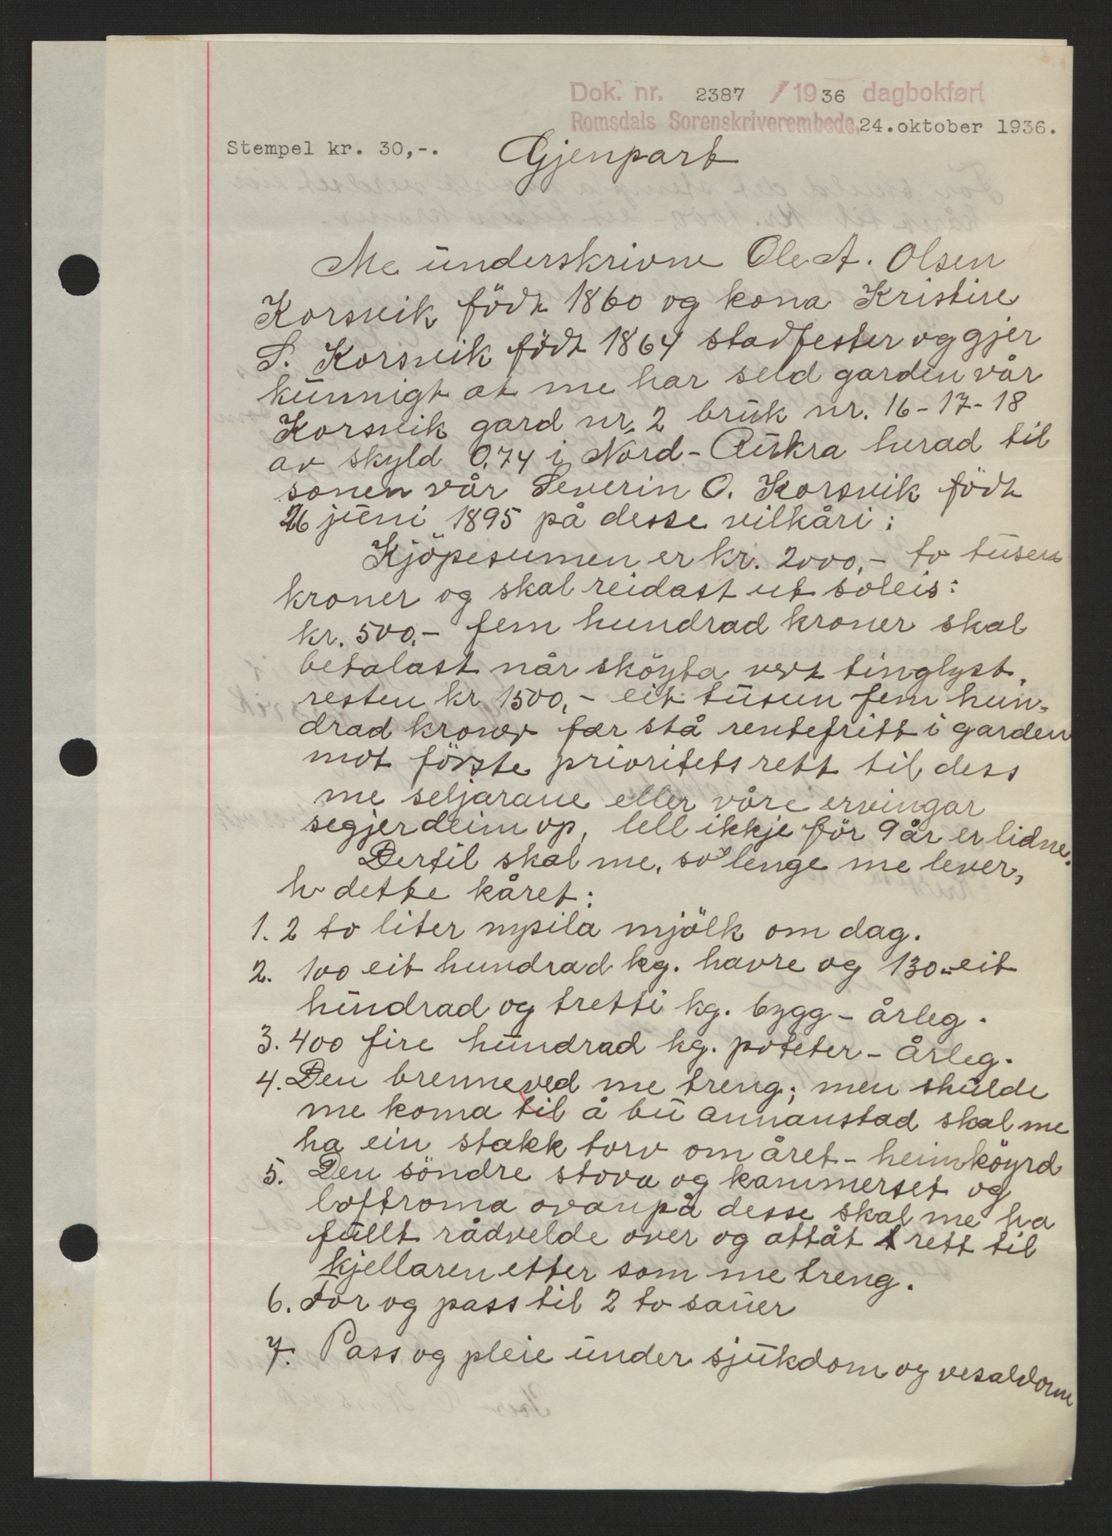 Dok. nr. 2387 / 1936 dagbokført
Romsdals Sorenskriverembede, 24.oktober 1936.
Stempel kr. 30,-.
Gjenpart
Me underskrivne Ole A. Olsen
Korsvik födt 1860 og kona Kristine
S. Korsvik födt 1864 stadfester og gjer
kunnigt at me har seld garden vår
Korsvik gard nr. 2 bruk nr. 16-17-18
av skyld 0.74 i Nord-Aukra herad til
sonen vår Severin O. Korsvik födt
26 juni 1895 på desse vilkåri:
Kjöpesumen er kr. 2000,- to tusen
kroner og skal reidast ut soleis:
kr. 500.- fem hundrad kroner skal
betalast når sköyta vert tinglyst.
resten kr 1500,- eit tusun fem hun-
drad kroner fær stå rentefritt i garden
mot förste prioritets rett til dess
me seljarane eller våre ervingar
segjer deim op, lell ikkje för 9 år er lidne.
Dertil skal me, so lenge me lever,
ha dette kåret:
1. 2 to liter nysila mjölk om dag.
2. 100 eit hundrad kg. havre og 130 - eit
hundrad og tretti kg. bygg - årleg.
3. 400 fire hundrad kg. poteter - årleg.
4. Den brenneved me treng; men skulde
me koma til å bu annanstad skal me
ha ein stakk torv om året - heimköyrd
5. Den söndre stova og kammerset og
loftroma ovanpå desse skal me ha
fullt rådvelde over og attåt rett til
kjellaren etter som me treng.
6. For og pass til 2 to sauer
7. Pass og pleie under sjukdom og vesaldom